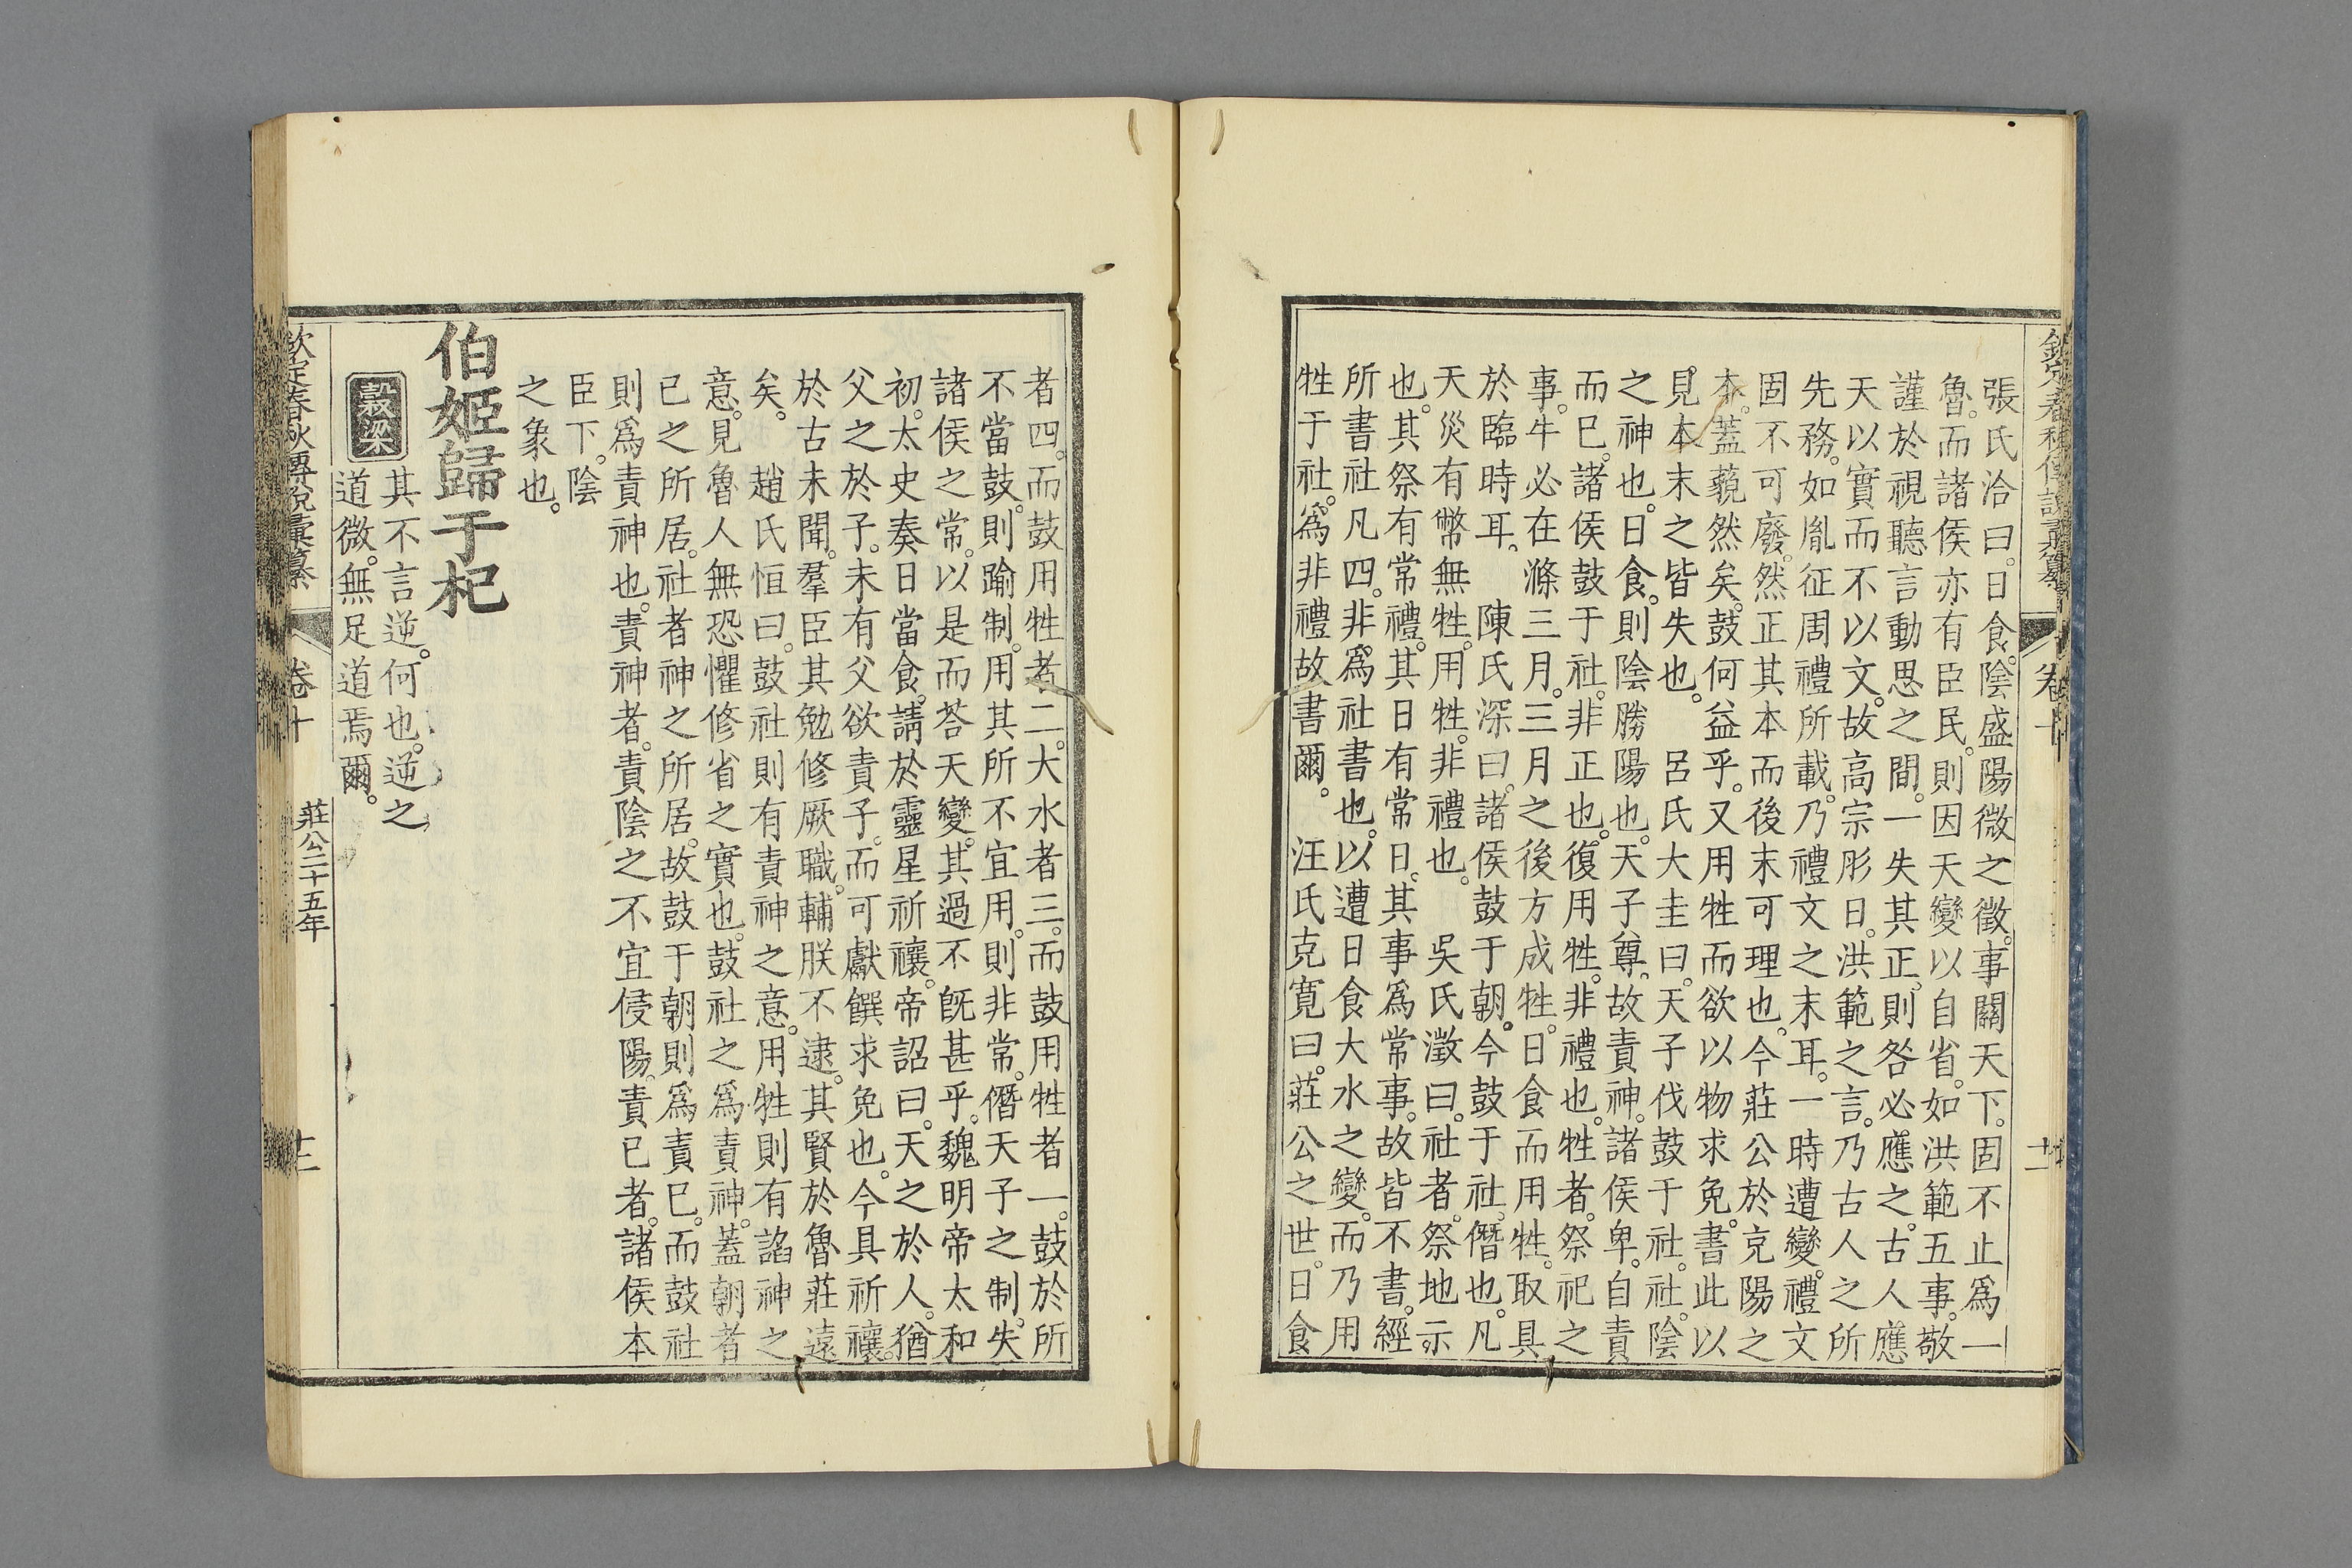 欽定春秋傳說彙纂
卷十
十二
張氏洽曰。日食。陰盛陽微之徵。事關天下。固不止爲一
魯。而諸侯亦有臣民。則因天變以自省。如洪範五事。敬
謹於視聽言動思之間。一失其正。則咎必應之。古人應
天以實而不以文。故高宗肜日。洪範之言。乃古人之所
先務。如胤征周禮所載。乃禮文之末耳。一時遭變。禮文
固不可廢。然正其本而後末可理也。今莊公於克陽之
本。蓋藐然矣。鼓何益乎。又用牲而欲以物求免。書此以
見本末之皆失也。 呂氏大圭曰。天子伐鼓于社。社。陰
之神也。日食。則陰勝陽也。天子尊。故責神。諸侯卑。自責
而已。諸侯鼓于社。非正也。復用牲。非禮也。牲者。祭祀之
事。牛必在滌三月。三月之後方成牲。日食而用牲。取具
於臨時耳。 陳氏深曰。諸侯鼓于朝。今鼓于社。僭也。凡
天災有幣無牲。用牲。非禮也。 吳氏澂曰。社者。祭地示
也。其祭有常禮。其日有常日。其事爲常事。故皆不書。經
所書社凡四。非爲社書也。以遭日食大水之變。而乃用
牲于社。爲非禮故書爾。 汪氏克寬曰。莊公之世。日食
者四。而鼓用牲者二。大水者三。而鼓用牲者一。鼓於所
不當鼓。則踰制。用其所不宜用。則非常。僭天子之制。失
諸侯之常。以是而荅天變。其過不旣甚乎。魏明帝太和
初。太史奏日當食。請於靈星祈禳。帝詔曰。天之於人。猶
父之於子。未有父欲責子。而可獻饌求免也。今具祈禳。
於古未聞。羣臣其勉修厥職。輔朕不逮。其賢於魯莊遠
矣。 趙氏恒曰。鼓社則有責神之意。用牲則有諂神之
意。見魯人無恐懼修省之實也。鼓社之爲責神。蓋朝者
已之所居。社者神之所居。故鼓于朝則爲責已。而鼓社
則爲責神也。責神者。責陰之不宜侵陽。責已者。諸侯本
臣下。陰
之象也。
伯姬歸于杞
穀梁
其不言逆。何也。逆之
道微。無足道焉爾。
欽定春秋傳說彙纂
卷十
莊公二十五年
十三